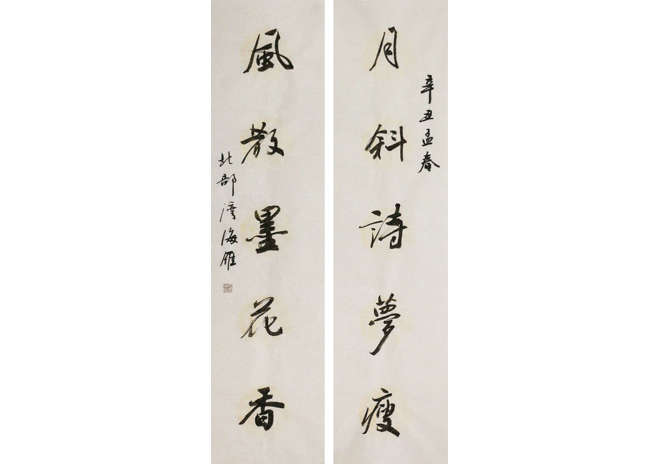 辛丑孟春
月斜詩夢瘦
風散墨花香
北部湾海雁